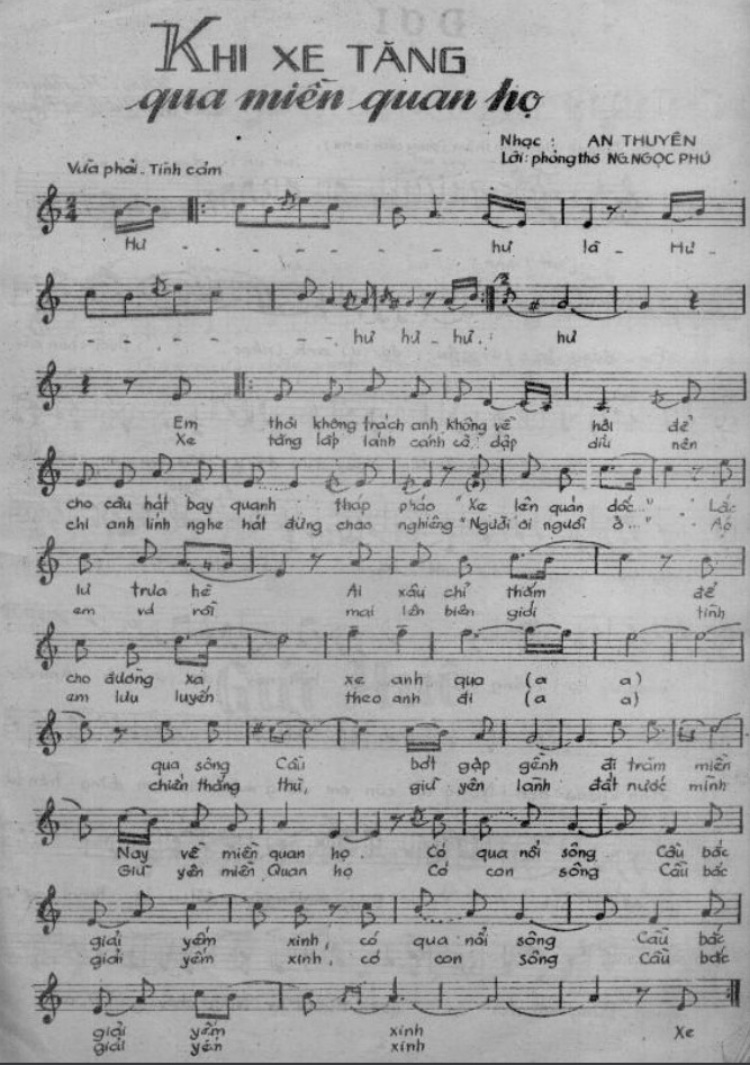 KHI XE TĂNG
qua miền quan họ
Nhạc : AN THUYÊN
Lời : phỏng thơ NG. NGỌC PHÚ
Vừa phải - Tình cảm
2/4
Hư - - - - - - - hư là - Hư -
- - - - - - hư hư - hư : hư
Em thôi không trách anh không về hội để
Xe tăng lấp lánh cánh cò dập dìu nên
cho câu hát bay quanh tháp pháo "Xe lên quán dốc..." . Lắc
chi anh lính nghe hát đừng chao nghiêng "Người ơi người ở..." Áo
lư trưa hè Ai xâu chỉ thắm để
em vá rồi mai lên biên giới tình
cho đường xa xe anh qua (a a)
em lưu luyến theo anh đi (a a)
qua sông Cầu bớt gập gềnh đi trăm miền
chiến thắng thù, giữ yên lành đất nước mình
Nay về miền quan họ . Có qua nổi sông Cầu bắc
Giữ yên miền Quan họ Có con sông Cầu bắc
giải yếm xinh, có qua nổi sông Cầu bắc
giải yếm xinh, có con sông Cầu bắc
giải yếm xinh Xe
giải yếm xinh